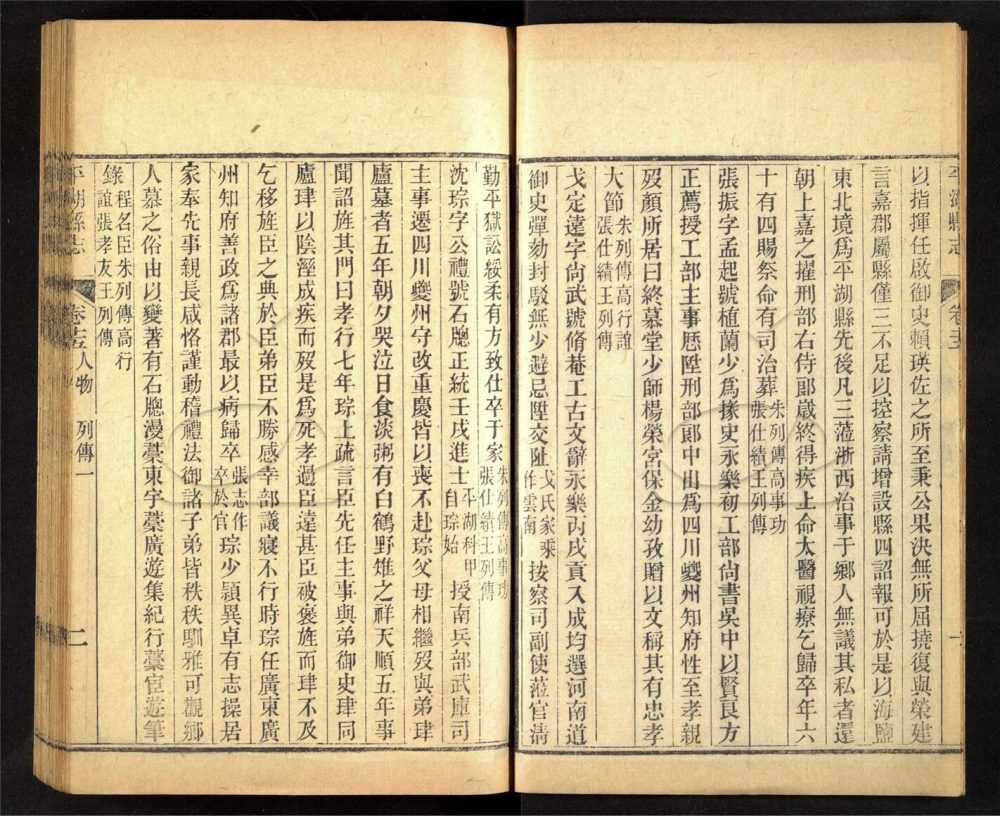 以指揮任啟御史賴瑛佐之所至秉公果決無所屈撓復與榮建
言嘉郡屬縣僅三不足以控察請增設縣四詔報可於是以海鹽
東北境爲平湖縣先後凡三蒞浙西治事于鄉人無議其私者還
朝上嘉之擢刑部右侍郎歲終得疾上命太醫視療乞歸卒年六
十有四賜祭命有司治葬朱列傳高事功
張仕績王列傳
張振字孟起號植蘭少爲掾史永樂初工部尚書吳中以賢良方
正薦授工部主事歷陞刑部郎中出爲四川夔州知府性至孝親
歿顏所居曰終慕堂少師楊榮宮保金幼孜贈以文稱其有忠孝
大節朱列傳高行誼
張仕績王列傳
戈定遠字尚武號脩菴工古文辭永樂丙戌貢入成均選河南道
御史彈劾封駁無少避忌陞交阯戈氏家乘
作雲南按察司副使蒞官淸
平湖縣志
卷十五
人物
列傳一
二
勤平獄訟綏柔有方致仕卒于家朱列傳高事功
張仕績王列傳
沈琮字公禮號石牕正統壬戌進士平湖科甲
自琮始授南兵部武庫司
主事遷四川夔州守改重慶皆以喪不赴琮父母相繼歿與弟珒
廬墓者五年朝夕哭泣日食淡粥有白鶴野雉之祥天順五年事
聞詔旌其門曰孝行七年琮上疏言臣先任主事與弟御史珒同
廬珒以陰溼成疾而歿是爲死孝過臣遠甚臣被褒旌而珒不及
乞移旌臣之典於臣弟臣不勝感幸部議寢不行時琮任廣東廣
州知府善政爲諸郡最以病歸卒張志作
卒於官琮少穎異卓有志操居
家奉先事親長咸恪謹動稽禮法御諸子弟皆秩秩馴雅可觀鄉
人慕之俗由以變著有石牕漫藁東宇藁廣遊集紀行藁宦遊筆
錄程名臣朱列傳高行
誼張孝友王列傳
平湖縣志